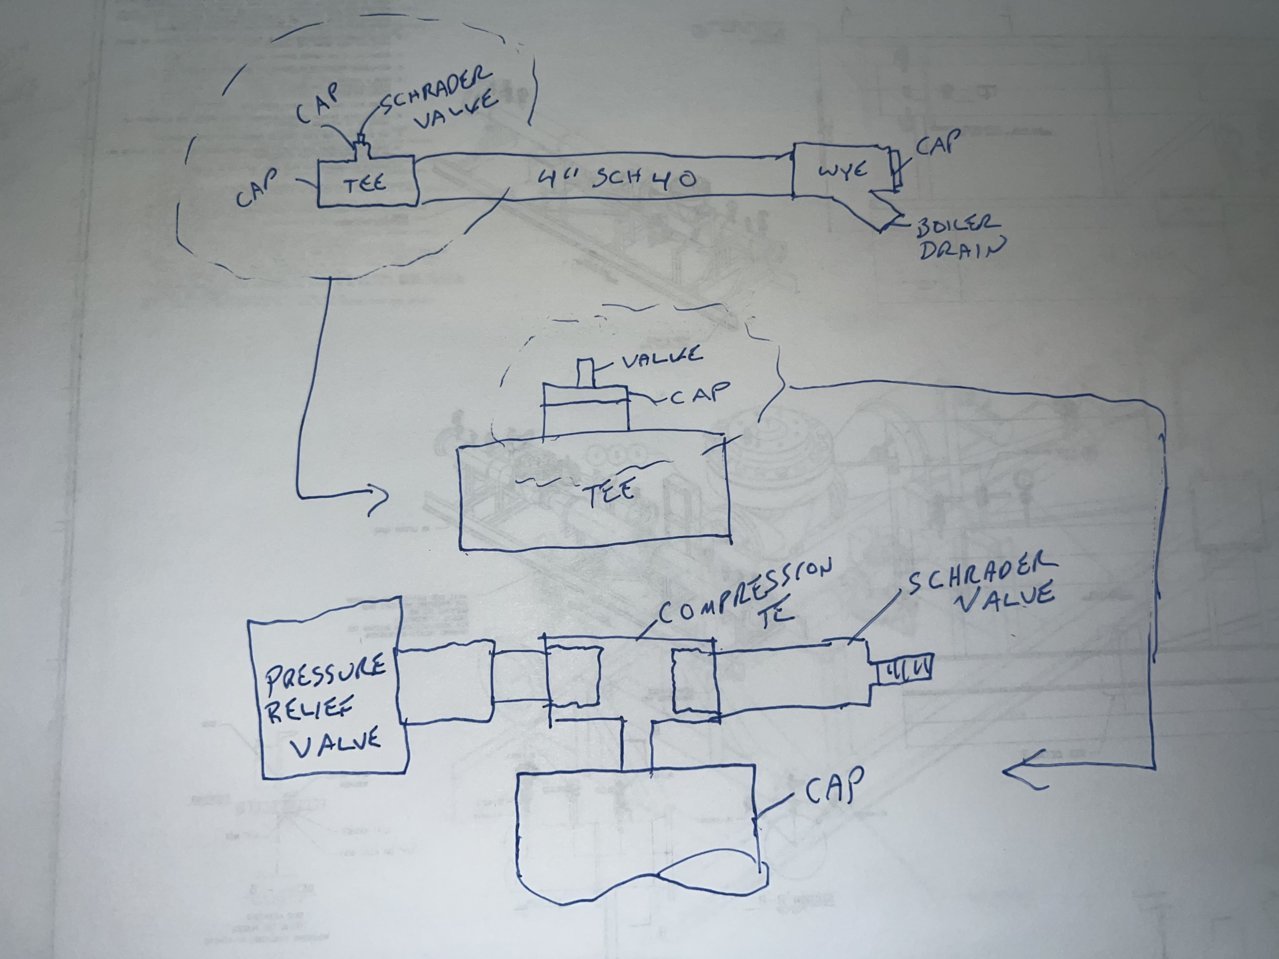 CAP
SCHRADER
VALVE
CAP
TEE
4" SCH 40
WYE
CAP
BOILER
DRAIN
VALVE
CAP
TEE
COMPRESSION
TE
SCHRADER
VALVE
PRESSURE
RELIEF
VALVE
CAP